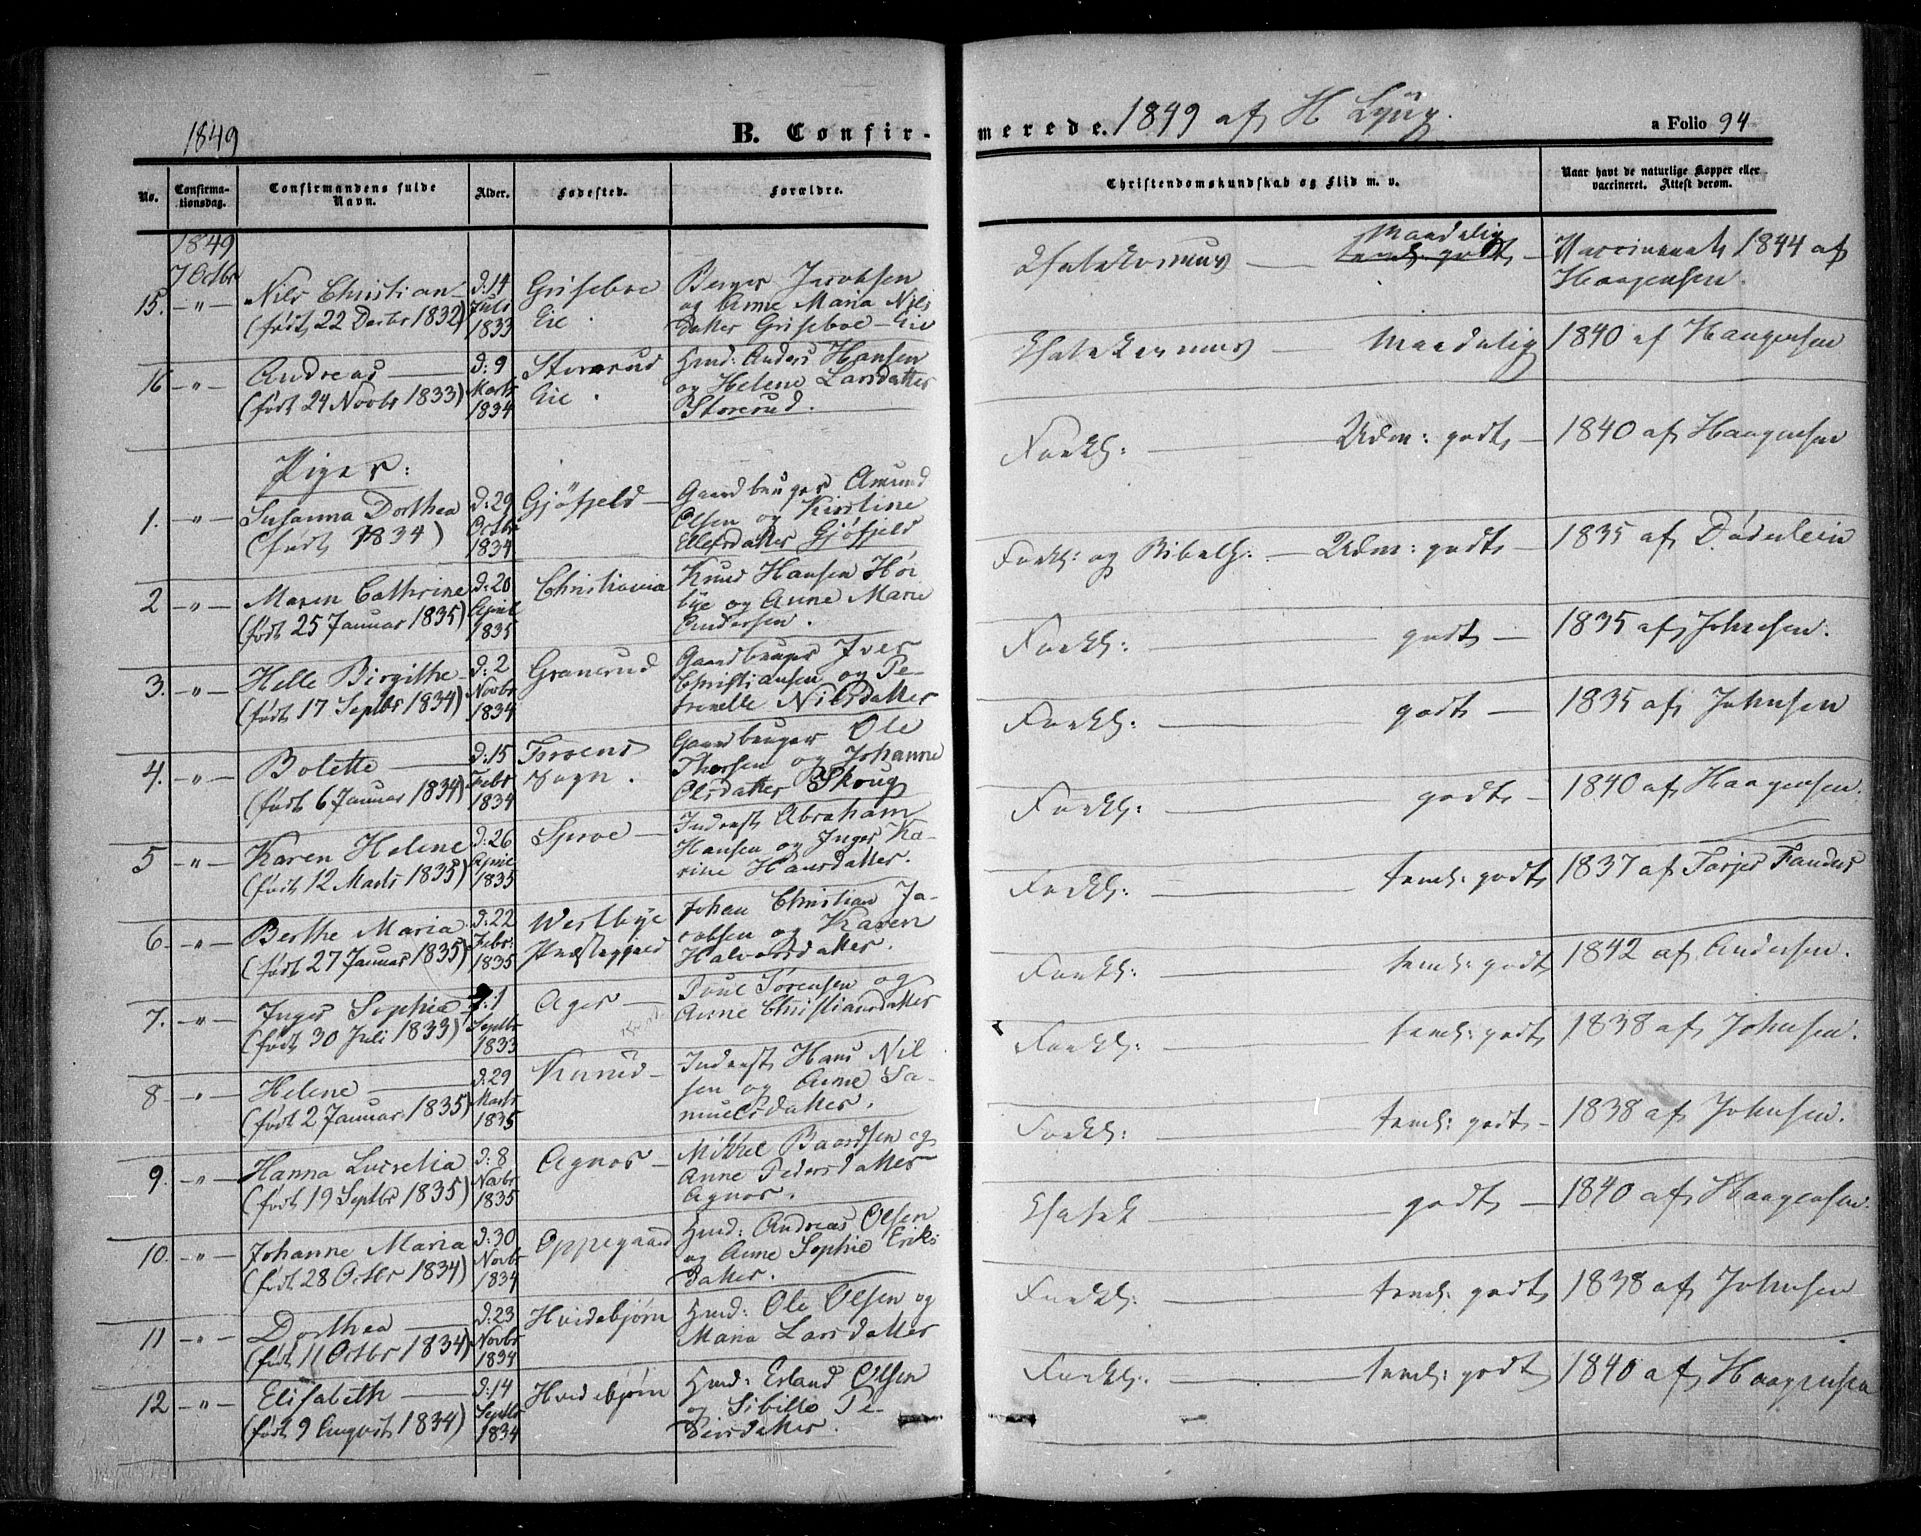 1849
B. Confirmerede. 1849 af H
a Folio 94
No.
Confirmationsdag.
Confirmandens fulde Navn.
Alder.
Fødested.
Forældre.
Christendomskundskab og Flid m. v.
Naar havt de naturlige Kopper eller vaccineret. Attest derom.
1849
7 Octbr
15. -"- Nils Christian
(født 22 Decbr 1832)
d: 14 Juli 1833
Griseboe Eie.
Berger Jacobsen
og Anne Maria Nils
datter Griseboe-Eie
Maadelig
teml: godt
Vaccineret 1844 af
Haagensen.
16 -"- Andreas
(født 24 Novbr 1833)
d: 9 Marts 1834
Storerud Eie.
Hmd: Anders Hansen
og Helene Larsdatter
Storerud.
Maadelig
1840 af Haagensen
Piger:
1. -"- Susanna Dorthea
(født 1834)
d: 29 Octbr 1834
Gjøfjeld
Gaardbruger Amund
Olsen og Kirstine
Ellefsdatter Gjøfjeld
Forkl: Udm: godt
1840 af Haagensen
2 -"- Maren Cathrine
(født 25 Januar 1835)
d: 20 April 1835
Christiania
Knud Hansen Hör
bye og Anne Marie
Andersen.
Forkl: og Bibelh: Udm: godt
1835 af Döderlein
3. -"- Helle Birgithe
(født 17 Septbr 1834)
d: 2 Novbr 1834
Granerud
Gaardbruger Iver
Christiansen og Pe-
tronelle Nilsdatter
Forkl: godt
1835 af Johnsen.
4. -"- Bolette
(født 6 Januar 1834)
d: 15 Febr 1834
Froens Sogn.
Gaardbruger Ole
Thorsen og Johanne
Olsdatter Skoug
Forkl: godt
1835 af Johnsen
5 -"- Karen Helene
(født 12 Marts 1835)
d: 26 April 1835
Sproe
Inderst Abraham
Hansen og Inger Ka-
rine Hansdatter.
Forkl: godt
1840 af Haagensen.
6. -"- Berthe Maria
(født 27 Januar 1835)
d: 22 Febr: 1835
Westbye Præstegjeld
Johan Christian Ja-
cobsen og Karen
Halvorsdatter.
Forkl: teml: godt
1837 af Torjer
7. -"- Inger Sophia
(født 30 Juli 1833)
d: 1 Septbr 1833
Ager
Poul Sørensen og
Anne Christiansdatter
Forkl: teml: godt
1842 af Andersen.
8 -"- Helene
(født 2 Januar 1835)
d: 29 Marts 1835
Inderst Hans Nil
sen og Anne Sa-
muelsdatter.
Forkl: teml: godt
1838 af Johnsen.
9. -"- Hanna Lucretia
(født 19 Septbr 1835)
d: 8 Novbr 1835
Agnor
Mikkel Baardsen og
Anne Pedersdatter
Agnor.
Forkl: teml: godt
1838 af Johnsen.
10. -"- Johanne Maria
(født 28 Octbr 1834)
d: 30 Novbr 1834
Oppegaard
Hmd: Andreas Olsen
og Anne Sophie Eriks
datter.
godt
1840 af Haagensen.
11 -"- Dorthea
(født 11 Octbr 1834)
d: 23 Novbr 1834
Hvidebjørn
Hmd: Ole Olsen og
Maria Larsdatter
Forkl: teml: godt
1838 af Johnsen
12 -"- Elisabeth
(født 9 August 1834)
d: 14 Septbr 1834
Hvidebjørn
Hmd: Erland Olsen
og Sibille Pe-
dersdatter.
Forkl: teml: godt
1840 af Haagensen